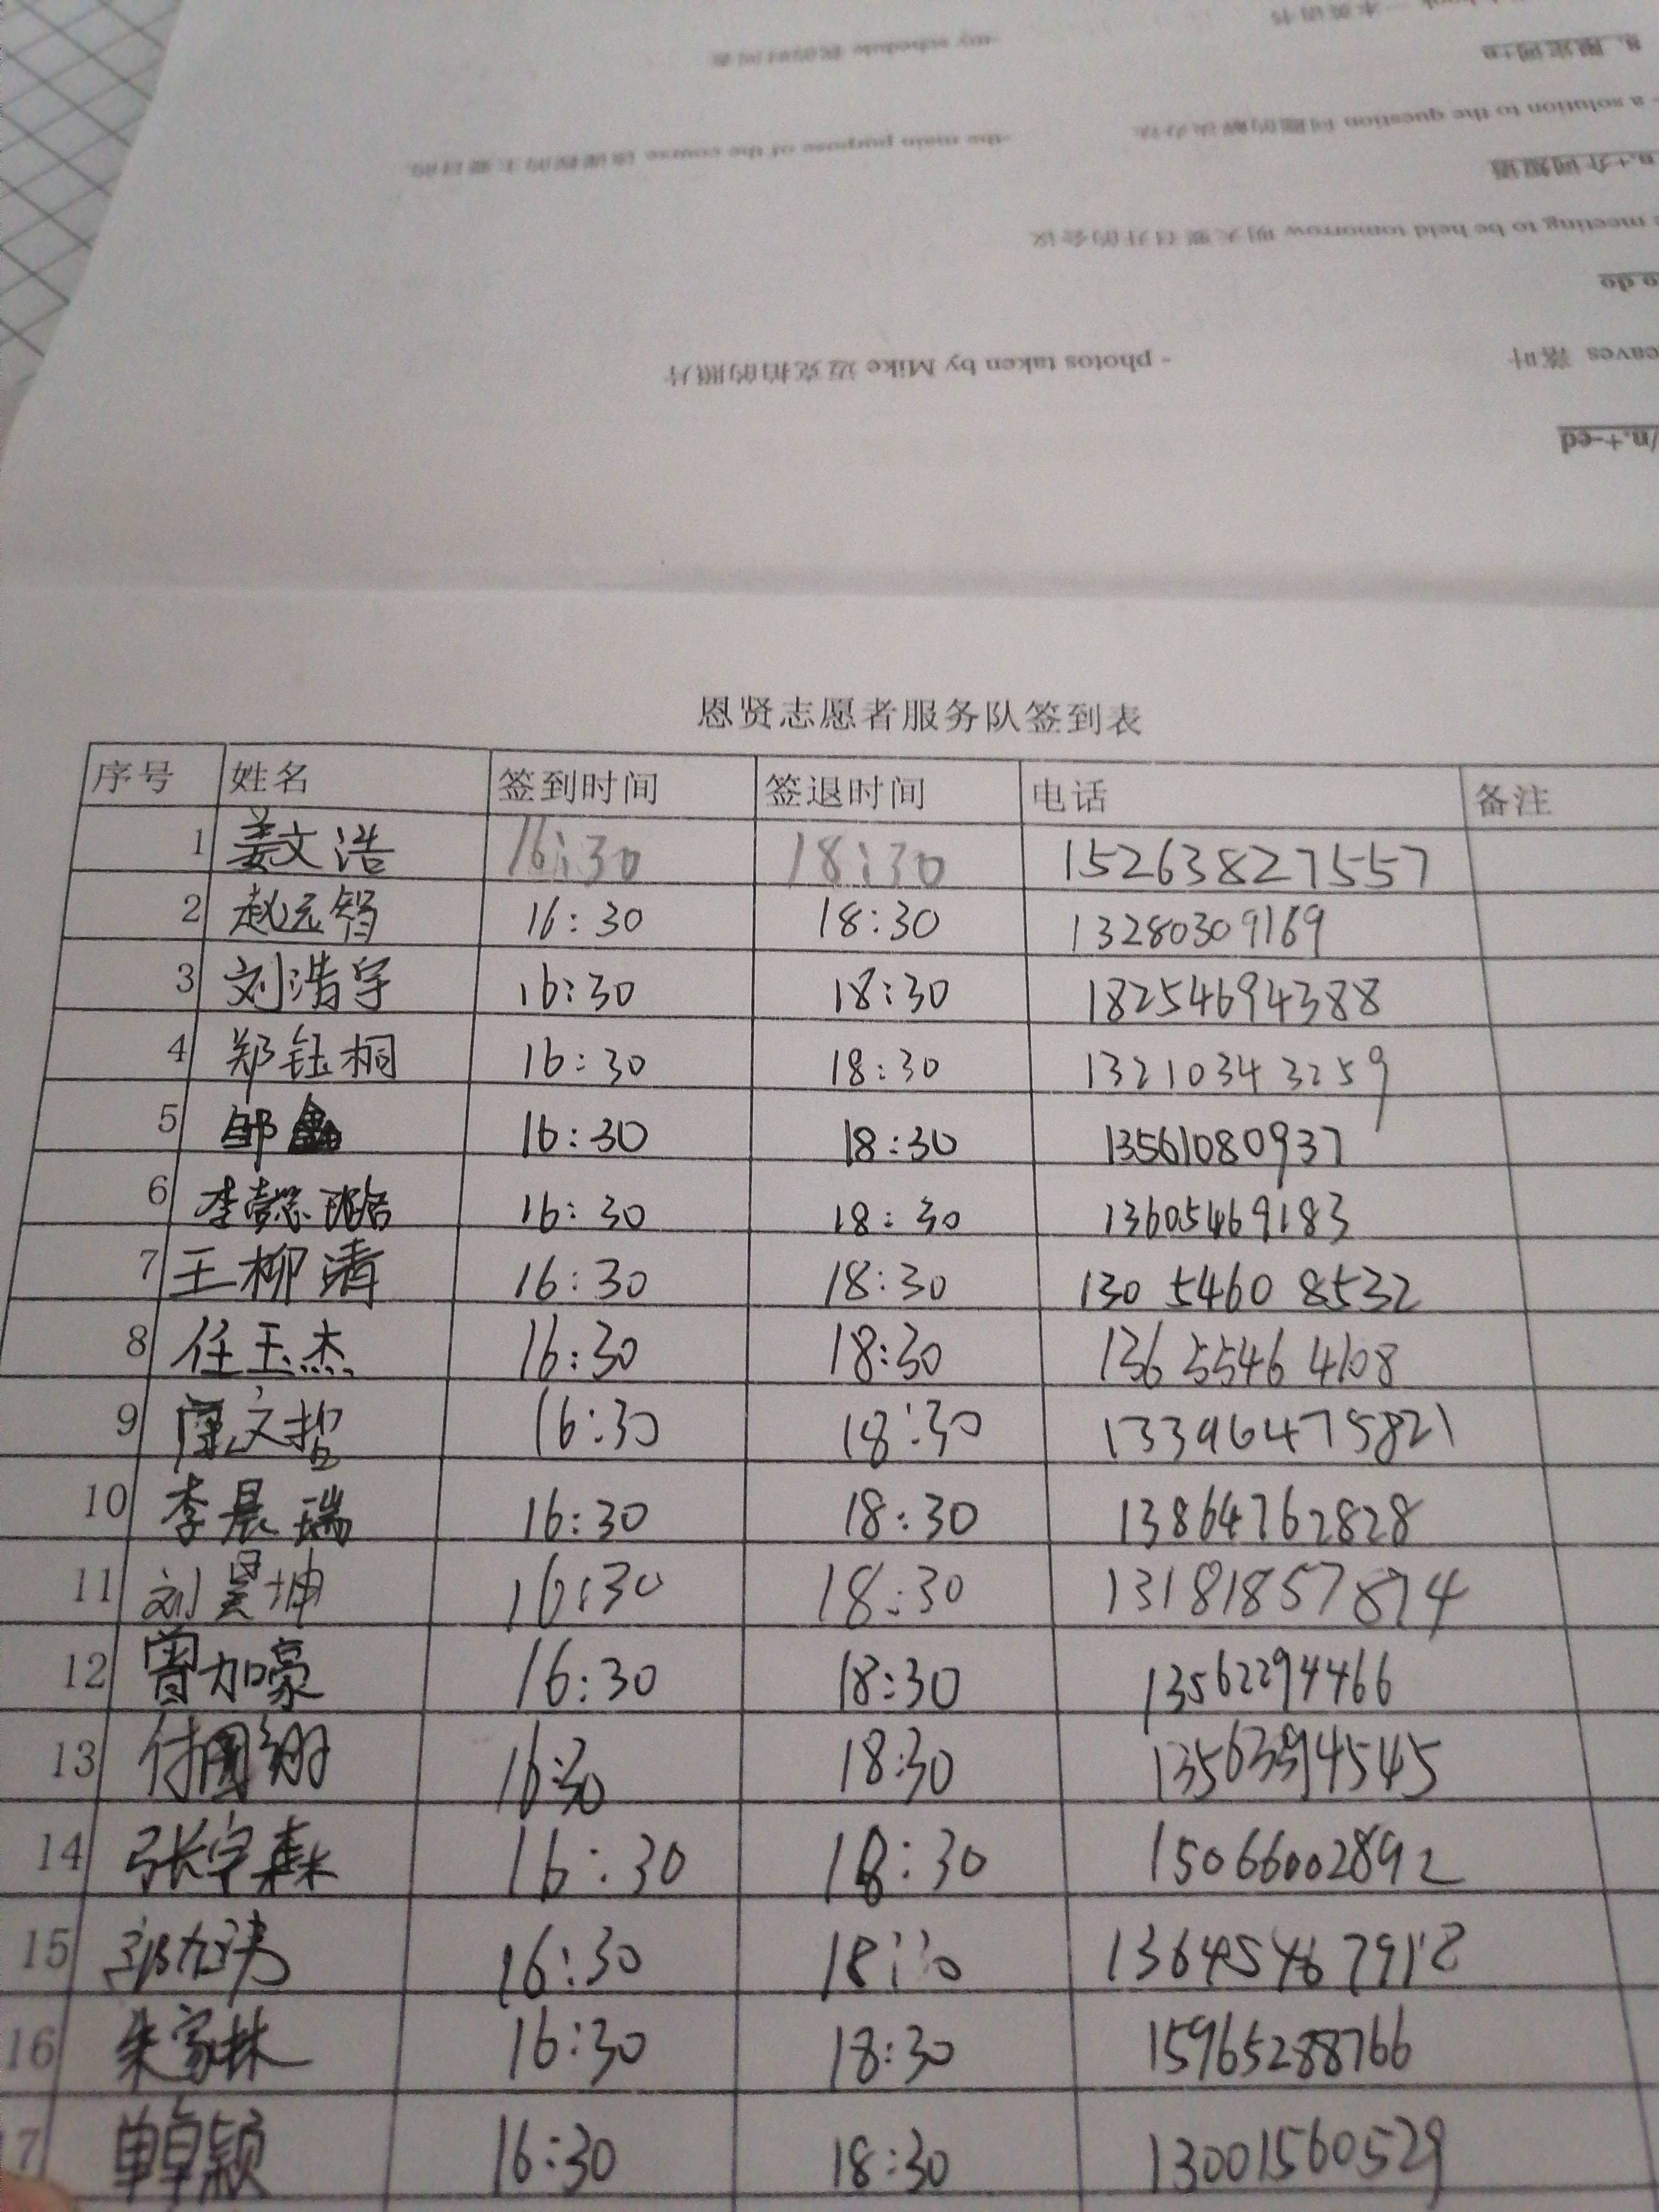 - photos taken by Mike 迈克拍的照片
meeting to be held tomorrow 明天要召开的会议
- a solution to the question 问题的解决办法
-the main purpose of the course 该课程的主要目的
-my schedule 我的时间表
eaves 落叶
/n.+-ed
o do
n.+介词短语
恩贤志愿者服务队签到表
序号 姓名 签到时间 签退时间 电话 备注
1 姜文浩 16:30 18:30 15263827557
2 赵元智 16:30 18:30 13280309169
3 刘浩宇 16:30 18:30 18254694388
4 郑钰桐 16:30 18:30 13210343259
5 邹鑫 16:30 18:30 13561080937
6 李 16:30 18:30 13605469183
7 王柳清 16:30 18:30 130 5460 8532
8 任玉杰 16:30 18:30 136 5546 4108
9 文哲 16:30 18:30 13396475821
10 李晨瑞 16:30 18:30 13864762828
11 刘昊坤 16:30 18:30 13181857874
12 曾加豪 16:30 18:30 13562294466
13 付国翔 16:30 18:30 13563394545
14 张宇森 16:30 18:30 15066002892
15 16:30 18:30 13645467912
16 朱家林 16:30 18:30 15965288766
7 单卓颖 16:30 18:30 13001560529